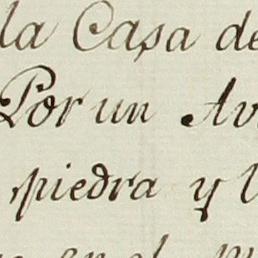 la Casa de
Por un Av
piedra y l
en el